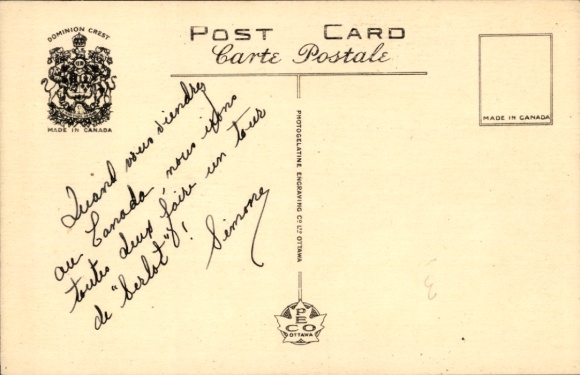 DOMINION CREST
MADE IN CANADA
POST CARD
Carte Postale
MADE IN CANADA
Quand vous viendrez
au Canada nous irons
toutes deux faire un tour
de "berlot"!
Simone
PHOTOGELATINE ENGRAVING CO LTD OTTAWA
PECO
OTTAWA